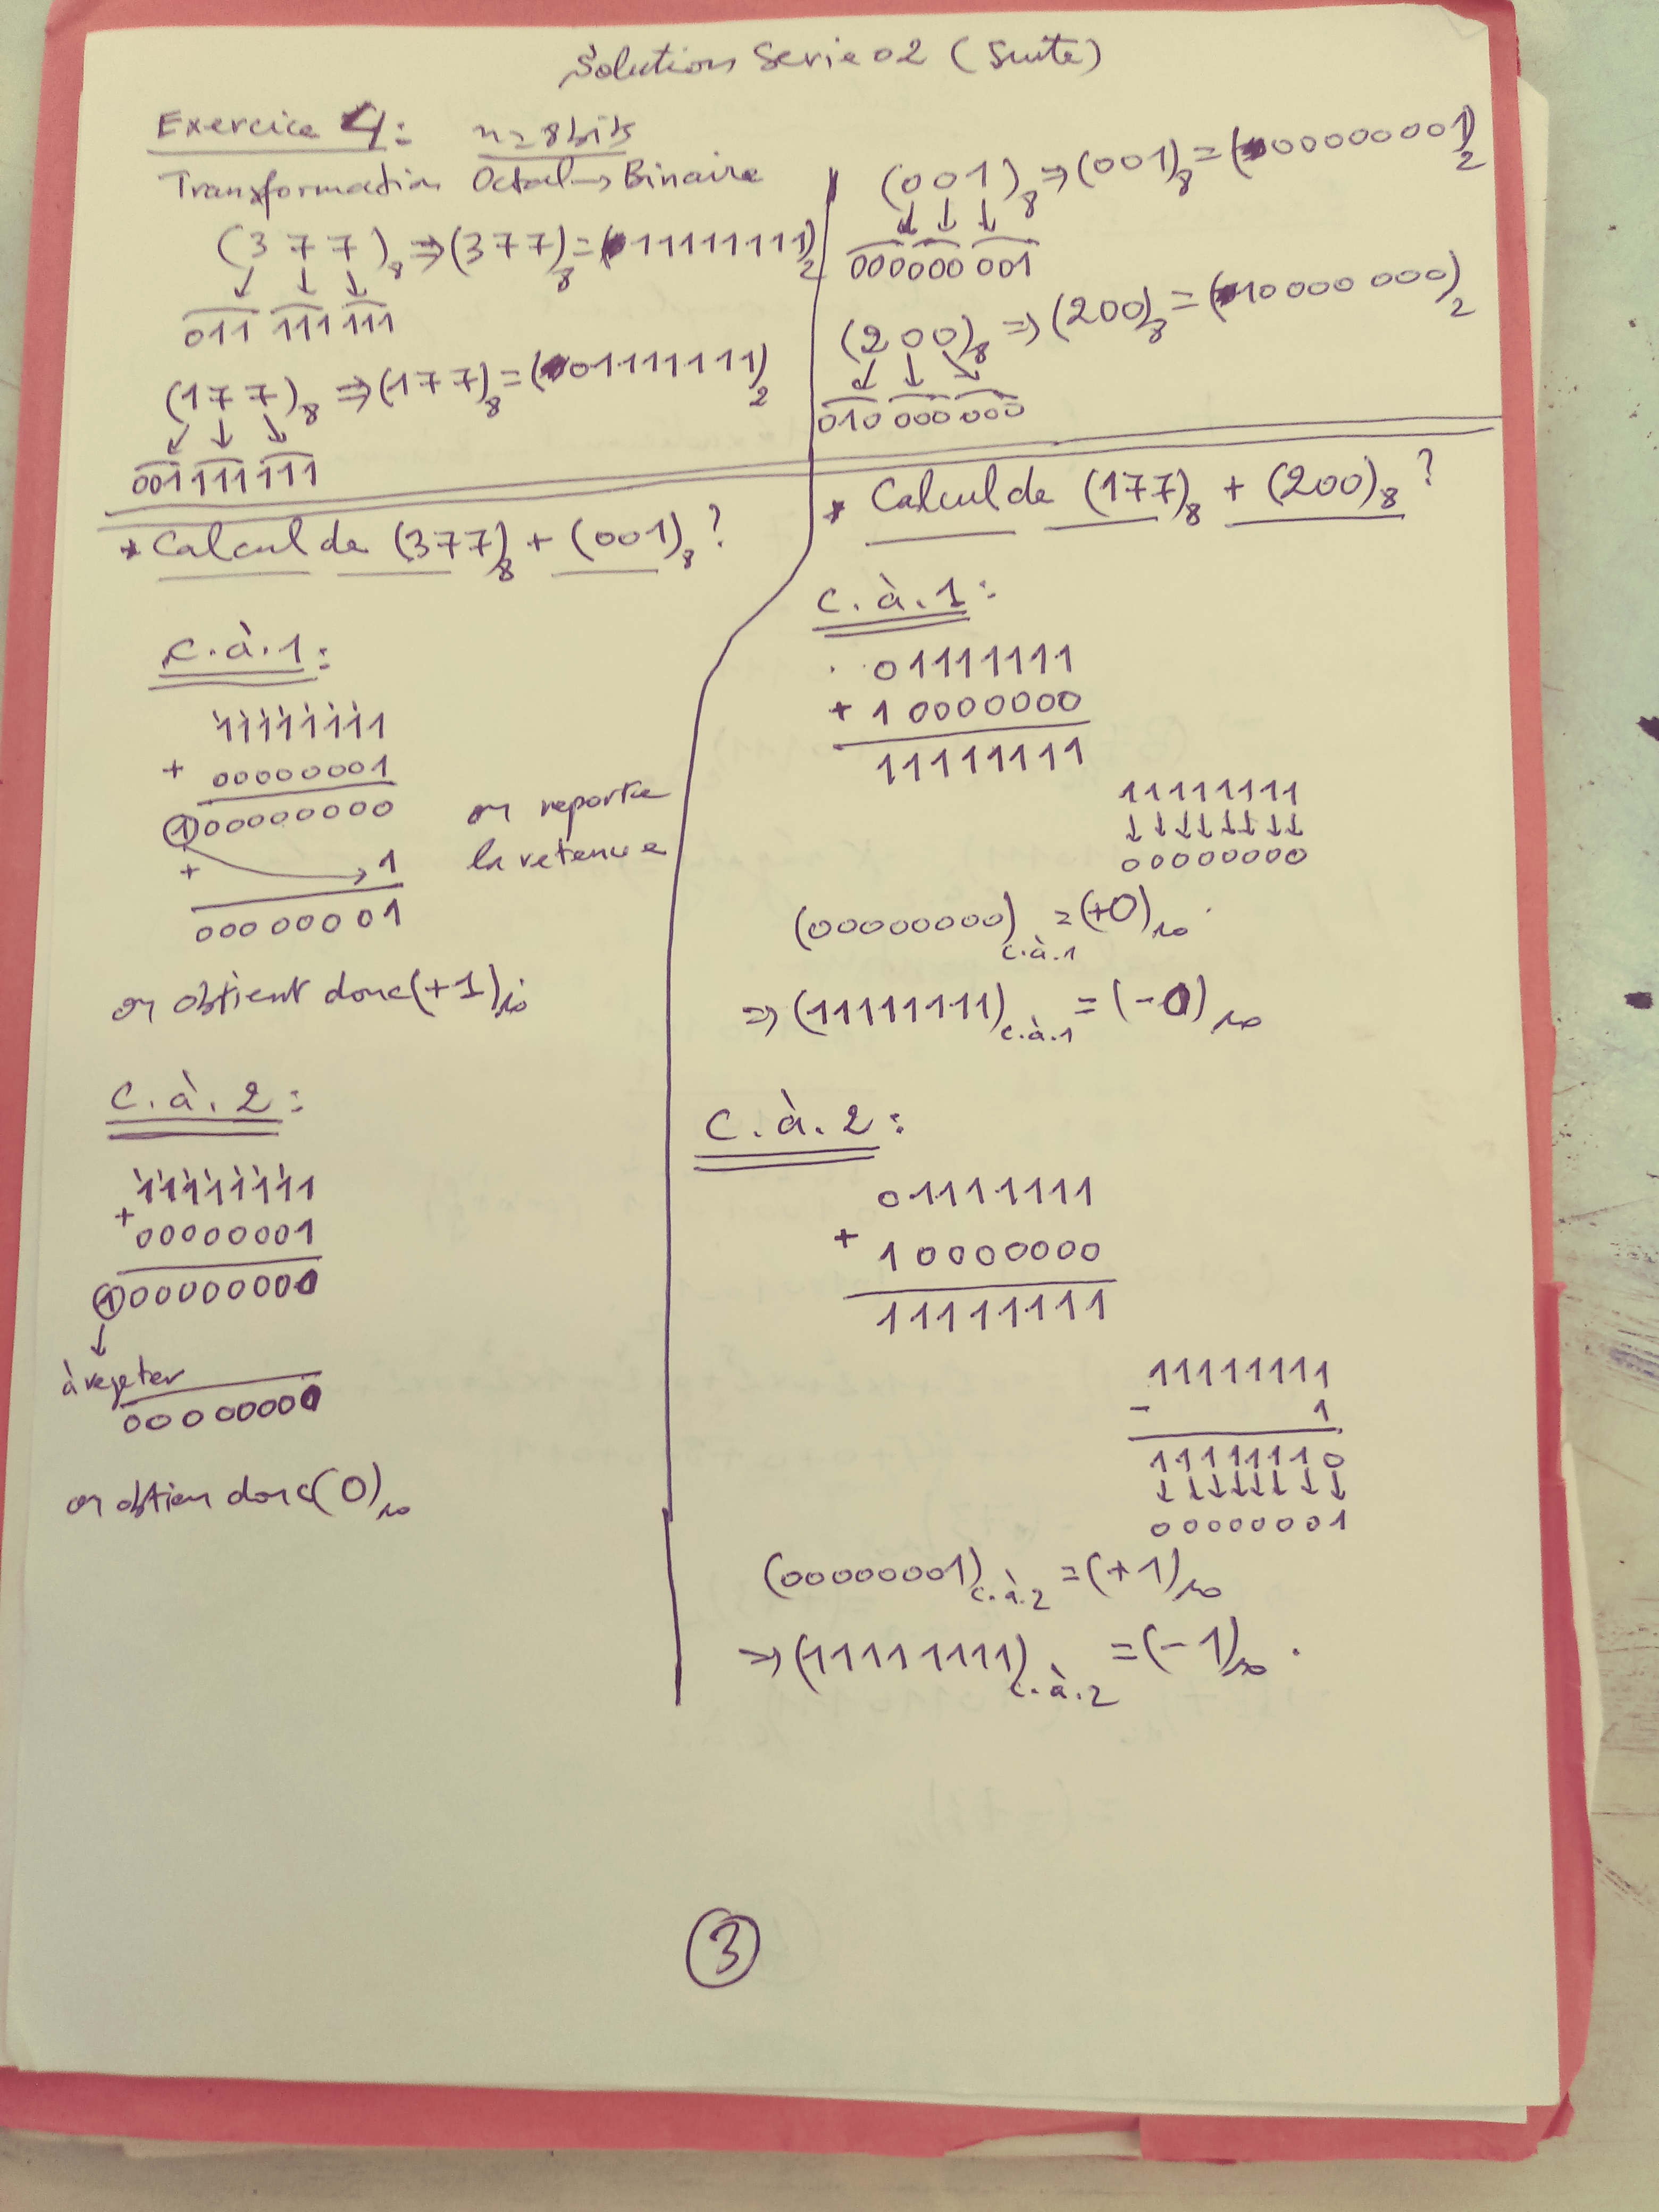 Solution Serie 02 (suite)
Exercice 4: n=8bits
Transformation Octal → Binaire
(3 7 7)₈ ⇒ (377)₈ = (11111111)₂
↓ ↓ ↓
011 111 111
(177)₈ ⇒ (177)₈ = (01111111)₂
↓ ↓ ↓
001 111 111
(001)₈ ⇒ (001)₈ = (00000001)₂
↓ ↓ ↓
000 000 001
(200)₈ ⇒ (200)₈ = (10000000)₂
↓ ↓ ↓
010 000 000
* Calcul de (377)₈ + (001)₈ ?
C.à.1:
11111111
+ 00000001
①00000000
on reporte
la retenue
+ 1
00000001
on obtient donc (+1)₁₀
C.à.2:
11111111
+ 00000001
①00000000
↓
à rejeter
00000000
on obtien donc (0)₁₀
* Calcul de (177)₈ + (200)₈ ?
C.à.1:
01111111
+ 10000000
11111111
11111111
↓↓↓↓↓↓↓↓
00000000
(00000000)c.à.1 = (+0)₁₀.
⇒ (11111111)c.à.1 = (-0)₁₀
C.à.2:
01111111
+ 10000000
11111111
11111111
- 1
11111110
↓↓↓↓↓↓↓↓
00000001
(00000001)c.à.2 = (+1)₁₀
⇒ (11111111)c.à.2 = (-1)₁₀.
③